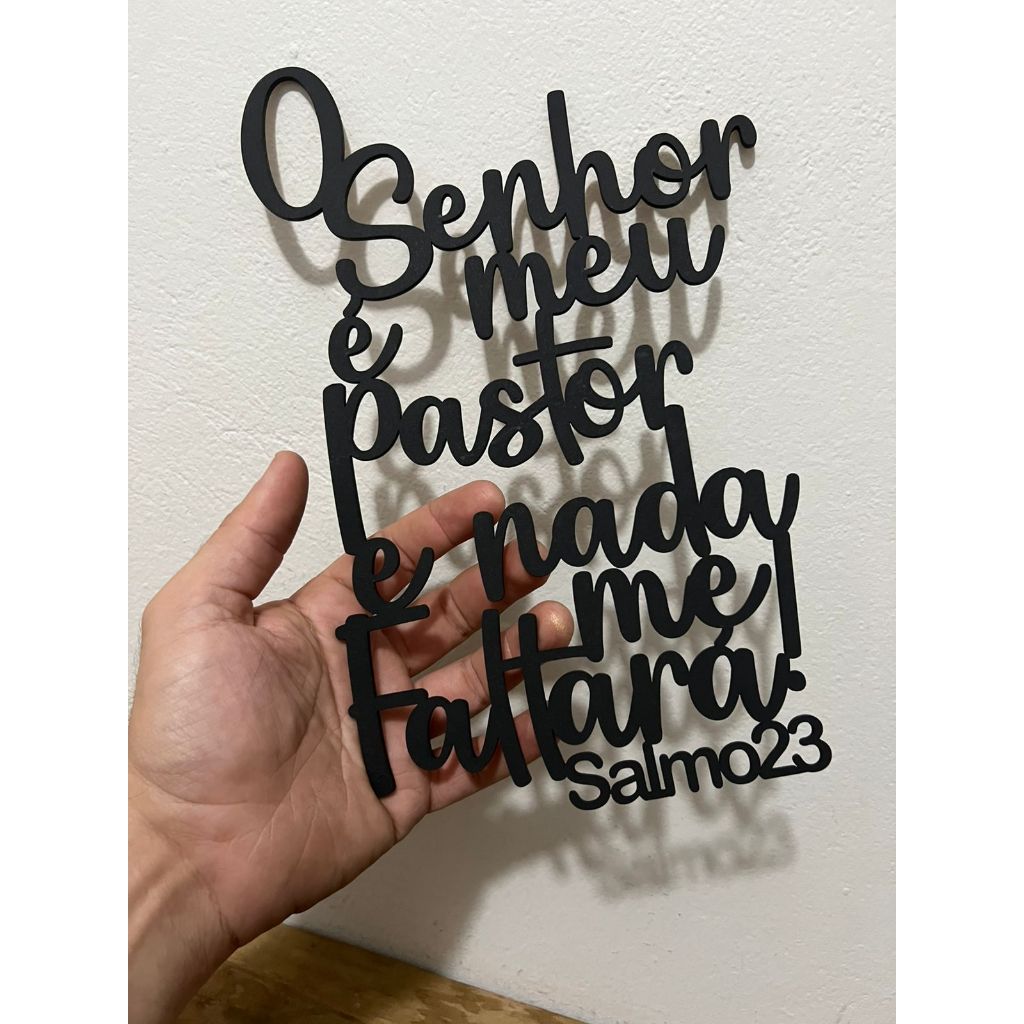 O Senhor
é meu
pastor
e nada
me
Faltará.
Salmo23